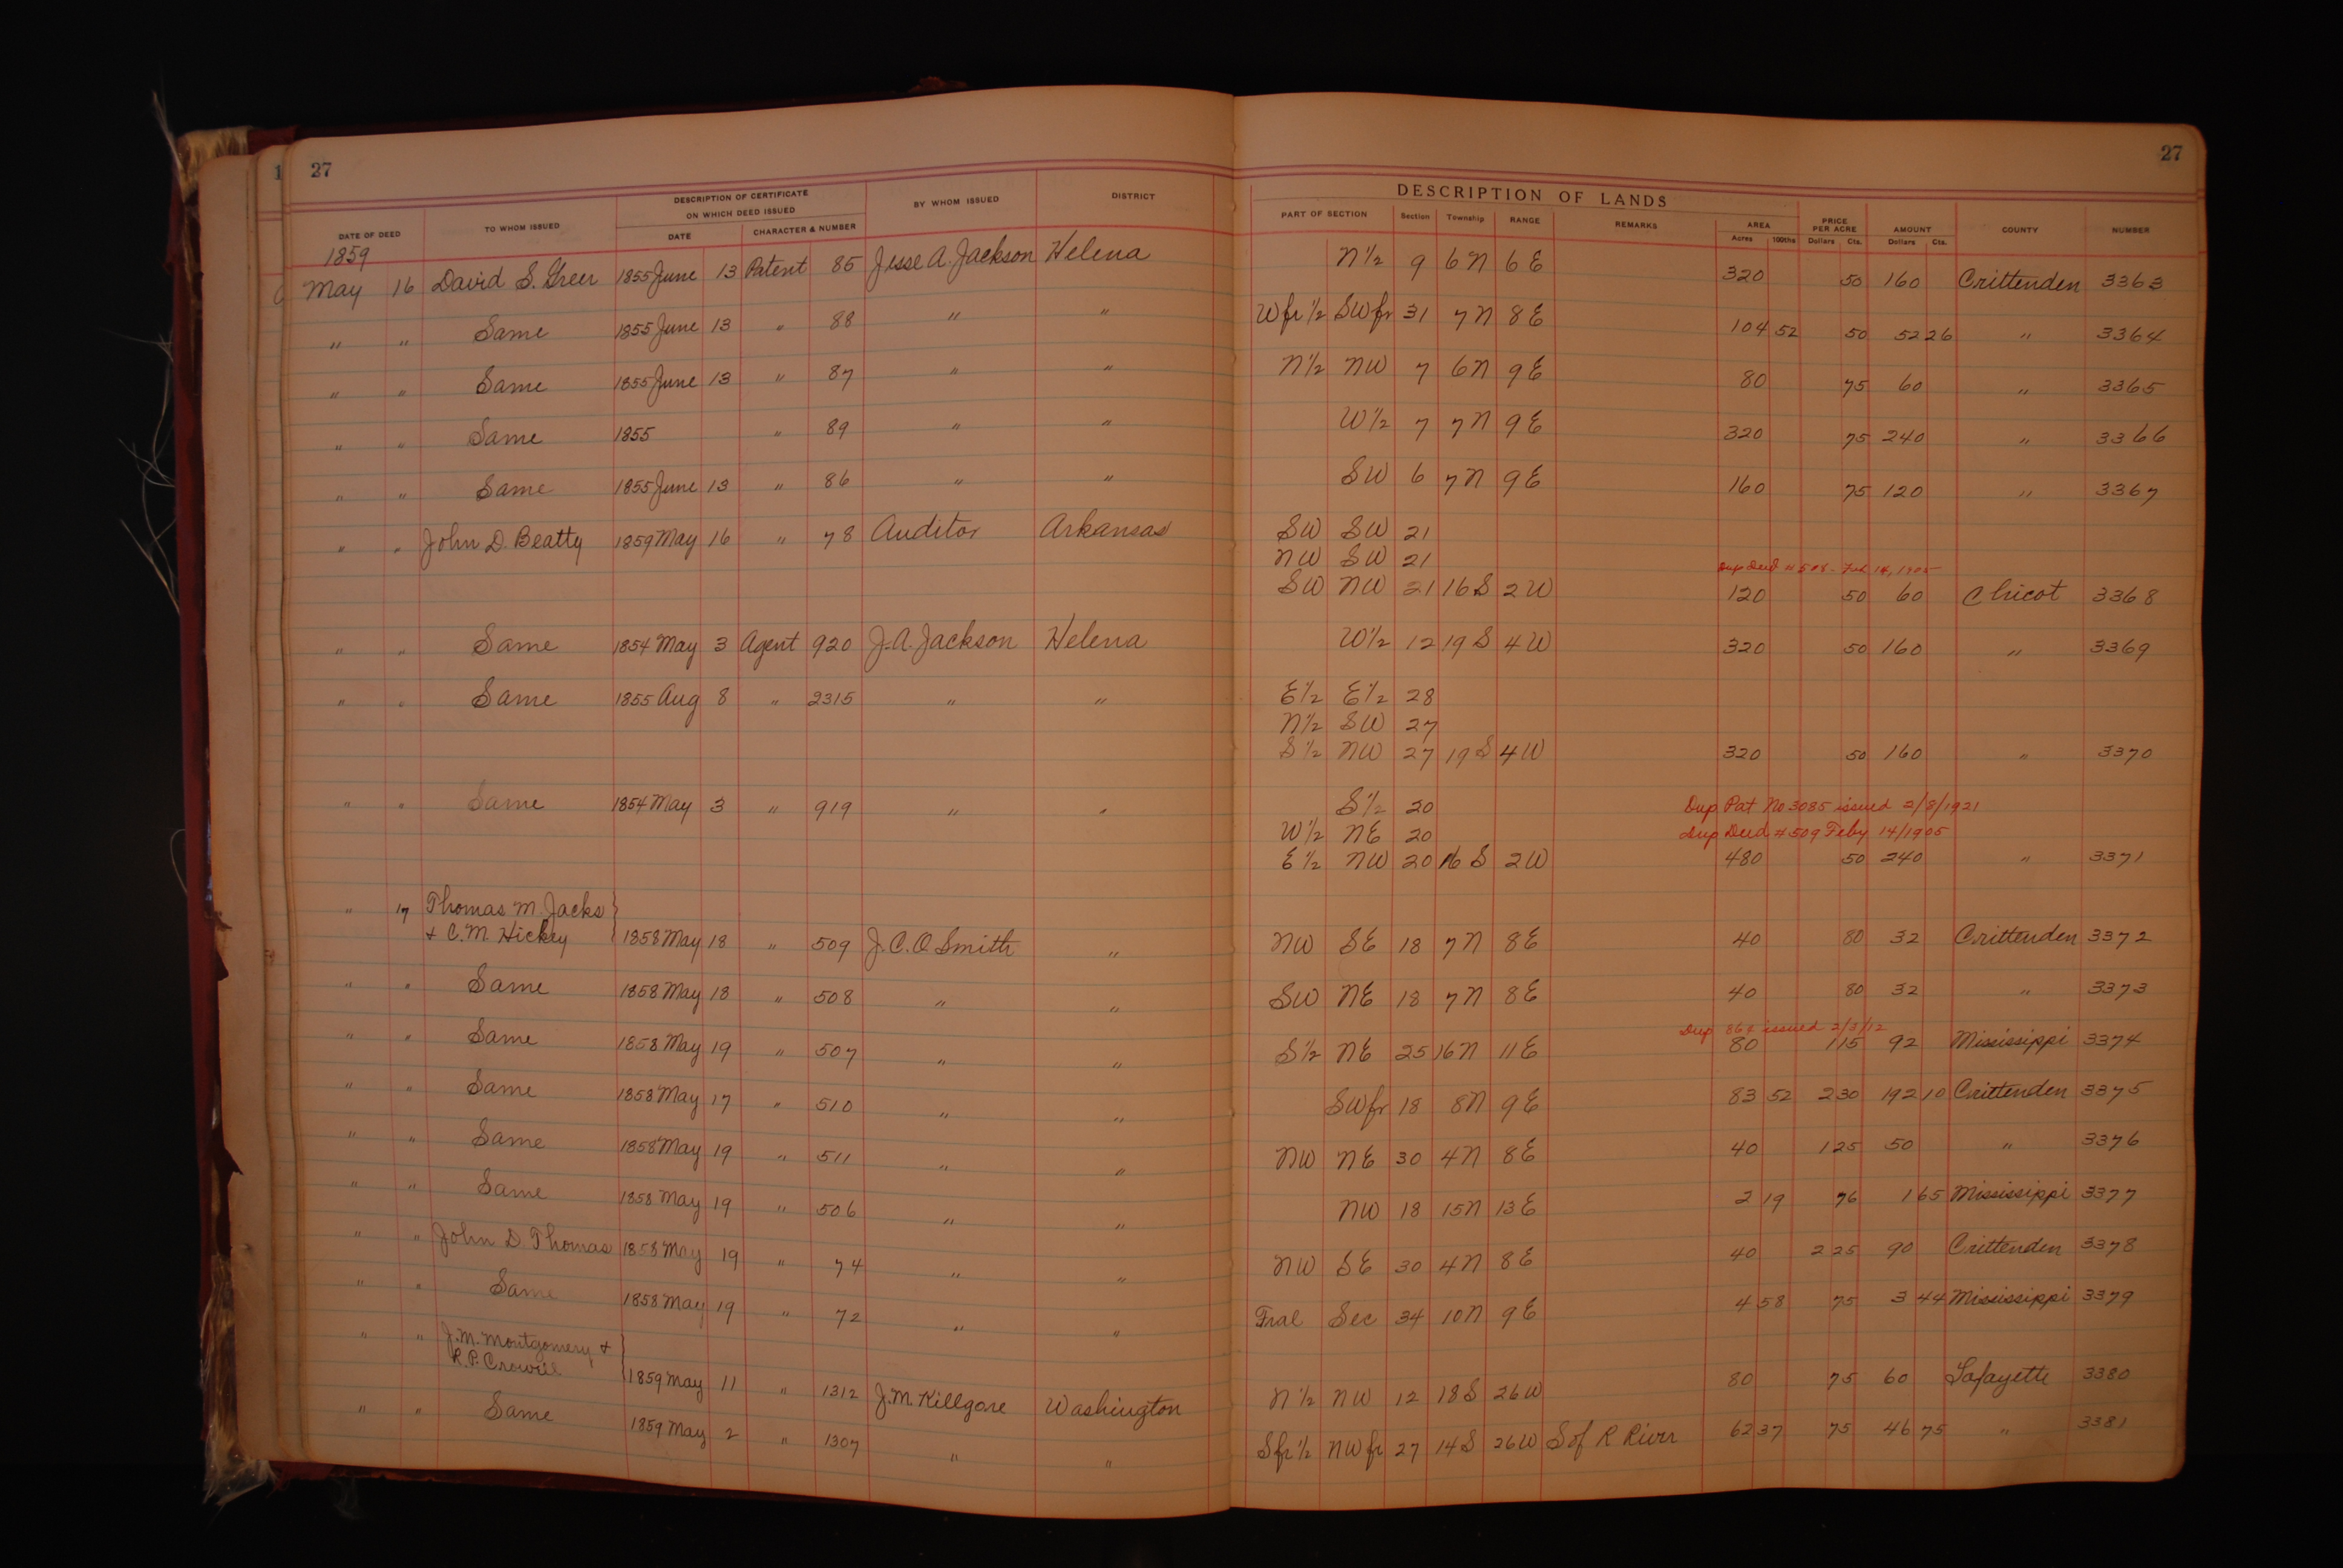 27
27
DESCRIPTION OF LANDS
DATE OF DEED TO WHOM ISSUED DESCRIPTION OF CERTIFICATE ON WHICH DEED ISSUED DATE CHARACTER & NUMBER BY WHOM ISSUED DISTRICT PART OF SECTION Section Township RANGE REMARKS AREA Acres 100ths PRICE PER ACRE Dollars Cts. AMOUNT Dollars Cts. COUNTY NUMBER
1859
May 16 David S. Greer 1855 June 13 Patent 85 Jesse A. Jackson Helena N½ 9 6N 6E 320 50 160 Crittenden 3363
" " Same 1855 June 13 " 88 " " W fr ½ SW fr 31 7N 8E 104 52 50 52 26 " 3364
" " Same 1855 June 13 " 87 " " N½ NW 7 6N 9E 80 75 60 " 3365
" " Same 1855 " 89 " " W½ 7 7N 9E 320 75 240 " 3366
" " Same 1855 June 13 " 86 " " SW 6 7N 9E 160 75 120 " 3367
" " John D. Beatty 1859 May 16 " 78 Auditor Arkansas SW SW 21
NW SW 21
Dup Deed # 508 - Feb 14, 1905
SW NW 21 16S 2W 120 50 60 Chicot 3368
" " Same 1854 May 3 Agent 920 J. A. Jackson Helena W½ 12 19S 4W 320 50 160 " 3369
" " Same 1855 Aug 8 " 2315 " " E½ E½ 28
N½ SW 27
S½ NW 27 19S 4W 320 50 160 " 3370
" " Same 1854 May 3 " 919 " " S½ 20 Dup. Pat No 3085 issued 2/8/1921
W½ NE 20 Dup Deed # 509 Feby 14/1905
E½ NW 20 16S 2W 480 50 240 " 3371
" 17 Thomas M. Jacks
& C. M. Hickey 1858 May 18 " 509 J. C. O. Smith " NW SE 18 7N 8E 40 80 32 Crittenden 3372
" " Same 1858 May 18 " 508 " " SW NE 18 7N 8E 40 80 32 " 3373
Dup issued 2/3/12
" " Same 1858 May 19 " 507 " " S½ NE 25 16N 11E 80 1 15 92 Mississippi 3374
" " Same 1858 May 17 " 510 " " SW fr 18 8N 9E 83 52 2 30 192 10 Crittenden 3375
" " Same 1858 May 19 " 511 " " NW NE 30 4N 8E 40 1 25 50 " 3376
" " Same 1858 May 19 " 506 " " NW 18 15N 13E 2 19 76 1 65 Mississippi 3377
" " John D. Thomas 1858 May 19 " 74 " " NW SE 30 4N 8E 40 2 25 90 Crittenden 3378
" " Same 1858 May 19 " 72 " " Fral Sec 34 10N 9E 4 58 75 3 44 Mississippi 3379
" " J. M. Montgomery &
R. P. 1859 May 11 " 1312 J. M. Killgore Washington N½ NW 12 18S 26W 80 75 60 Lafayette 3380
" " Same 1859 May 2 " 1307 " " S fr ½ NW fr 27 14S 26W S of R River 62 37 75 46 75 " 3381